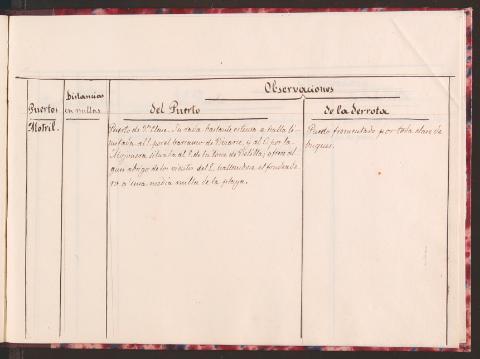 Observaciones
Puertos
Distancias
en millas
del Puerto
de la derrota
Motril.
Puerto de 2ª clase. Su rada bastante extensa se halla li-
mitada al
por el barranco de
y al O. por la
situada al
de la torre de
ofrece al-
gun abrigo de los vientos del
hallandose el fondeade-
ro a una media milla de la playa.
Puerto frecuentado por toda clase de
buques.